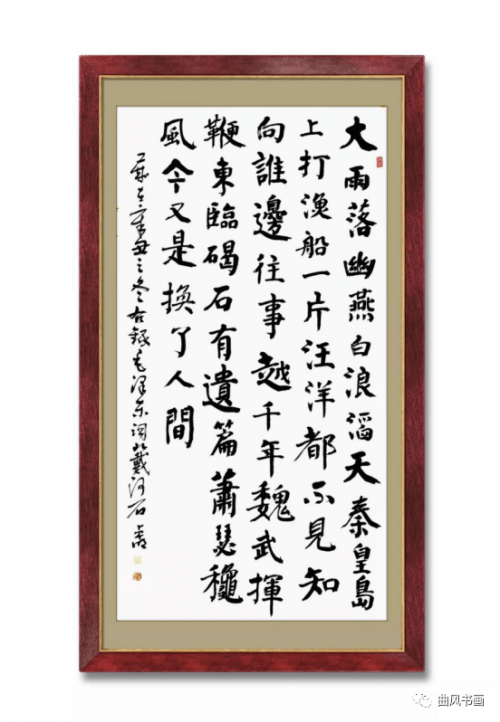 大雨落幽燕白浪滔天秦皇島
上打漁船一片汪洋都不見知
向誰邊往事越千年魏武揮
鞭東臨碣石有遺篇蕭瑟穐
風今又是換了人間
歲在辛丑之冬右錄毛泽东词北戴河石
曲风书画